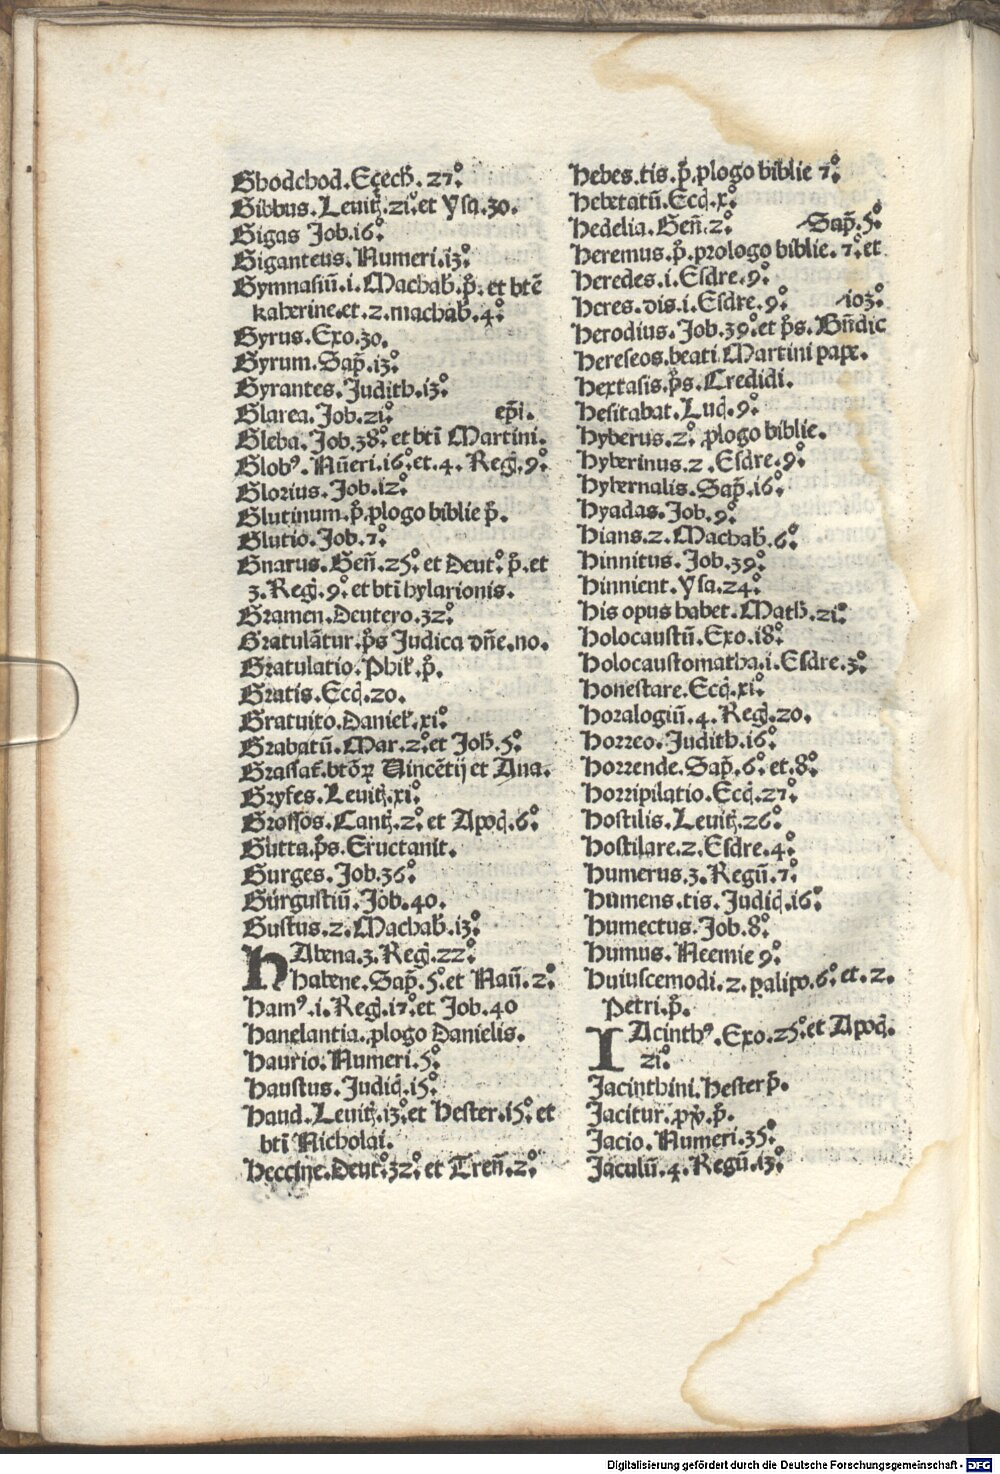 Ghodchod. Eçech̄. 27.°
Gibbus. Leuit̄ꝫ. 21.° et Ysa. 30.
Gigas Job. 16.°
Giganteus. Numeri. 13.°
Gymnasiū. i. Machab̄. p̄. et btē
katherine. et. 2. machab̄. 4.°
Gyrus. Exo. 30.
Gyrum. Sap̄. 13.°
Gyrantes. Judith. 13.°
Glarea. Job. 21.° ep̄i.
Gleba. Job. 38.° et bti Martini.
Globꝰ. Nūeri. 16.° et. 4. Reḡ. 9.°
Glorius. Job. 12.°
Glutinum. p̄. ꝓlogo biblie p̄.
Glutio. Job. 7.°
Gnarus. Gen̄. 25.° et Deut.° p̄. et
3. Reḡ. 9.° et bti hylarionis.
Gramen. Deutero. 32.°
Gratulātur. p̄s Judica dn̄e. no.
Gratulatio. Phil̄. p̄.
Gratis. Ecc̄i. 20.
Gratuito. Daniel̄. xi.°
Grabatū. Mar. 2.° et Joh̄. 5.°
Grassat̄. btōꝝ Vincētij et Ana.
Gryfes. Leuit̄ꝫ. xi.°
Grossos. Cant̄ꝫ. 2.° et Apoc̄. 6.°
Gutta. p̄s. Eructauit.
Gurges. Job. 36.°
Gurgustiū. Job. 40.
Gustus. 2. Machab̄. 13.°
HAbena. 3. Reḡ. 22.°
habene. Sap̄. 5.° et Naū. 2.°
hamꝰ. i. Reḡ. 17.° et Job. 40
hanelantia. ꝓlogo Danielis.
haurio. Numeri. 5.°
haustus. Judic̄. 15.°
haud. Leuit̄ꝫ. 13.° et hester. 15.° et
bti Nicholai.
heccine. Deut.° 32.° et Tren̄. 2.°
hebes. tis. p̄. ꝓlogo biblie 7.°
hebetatū. Ecc̄i. x.°
hedelia. Gen̄. 2.° Sap̄. 5.°
heremus. p̄. prologo biblie. 7.° et
heredes. i. Esdre. 9.°
heres. dis. i. Esdre. 9.° 103.°
herodius. Job. 39.° et p̄s. Bn̄dic
hereseos. beati Martini pape.
hextasis. p̄s. Credidi.
hesitabat. Luc̄. 9.°
hyberus. 2.° ꝓlogo biblie.
hyberinus. 2. Esdre. 9.°
hybernalis. Sap̄. 16.°
hyadas. Job. 9.°
hians. 2. Machab̄. 6.°
hinnitus. Job. 39.°
hinnient. Ysa. 24.°
his opus habet. Math̄. 21.°
holocaustū. Exo. 18.°
holocaustomatha. i. Esdre. 3.°
honestare. Ecc̄i. xi.°
horalogiū. 4. Reḡ. 20.
horreo. Judith. 16.°
horrende. Sap̄. 6.° et. 8.°
horripilatio. Ecc̄i. 27.°
hostilis. Leuit̄ꝫ. 26.°
hostilare. 2. Esdre. 4.°
humerus. 3. Regū. 7.°
humens. tis. Judic̄. 16.°
humectus. Job. 8.°
humus. Neemie 9.°
huiuscemodi. 2. ꝑalipo. 6.° et. 2.
Petri. p̄.
IAcinthꝰ. Exo. 25.° et Apoc̄.
21.°
Jacinthini. hester p̄.
Jacitur. p̄. p̄.
Jacio. Numeri. 35.°
Jaculū. 4. Regū. 13.°
Digitalisierung gefördert durch die Deutsche Forschungsgemeinschaft - DFG